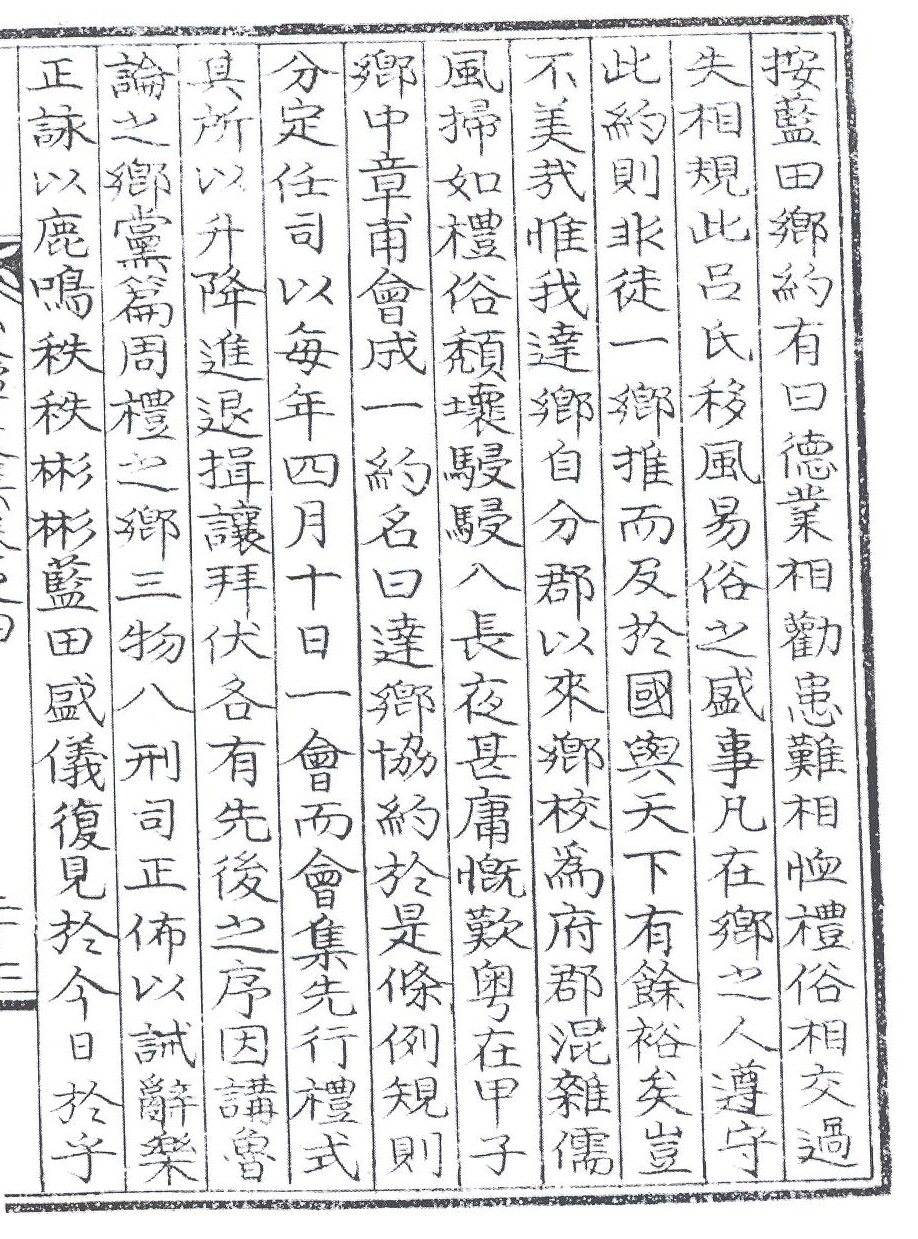 按藍田鄉約有曰德業相勸患難相恤禮俗相交過
失相規此呂氏移風易俗之盛事凡在鄉之人遵守
此約則非徒一鄉推而及於國與天下有餘裕矣豈
不美哉惟我達鄉自分郡以來鄉校爲府郡混雜儒
風掃如禮俗頹壞駸駸入長夜甚庸慨歎粤在甲子
鄉中章甫會成一約名曰達鄉協約於是條例規則
分定任司以每年四月十日一會而會集先行禮式
具所以升降進退揖讓拜伏各有先後之序因講魯
論之鄉黨篇周禮之鄉三物八刑司正佈以誡辭樂
正詠以鹿鳴秩秩彬彬藍田盛儀復見於今日於乎